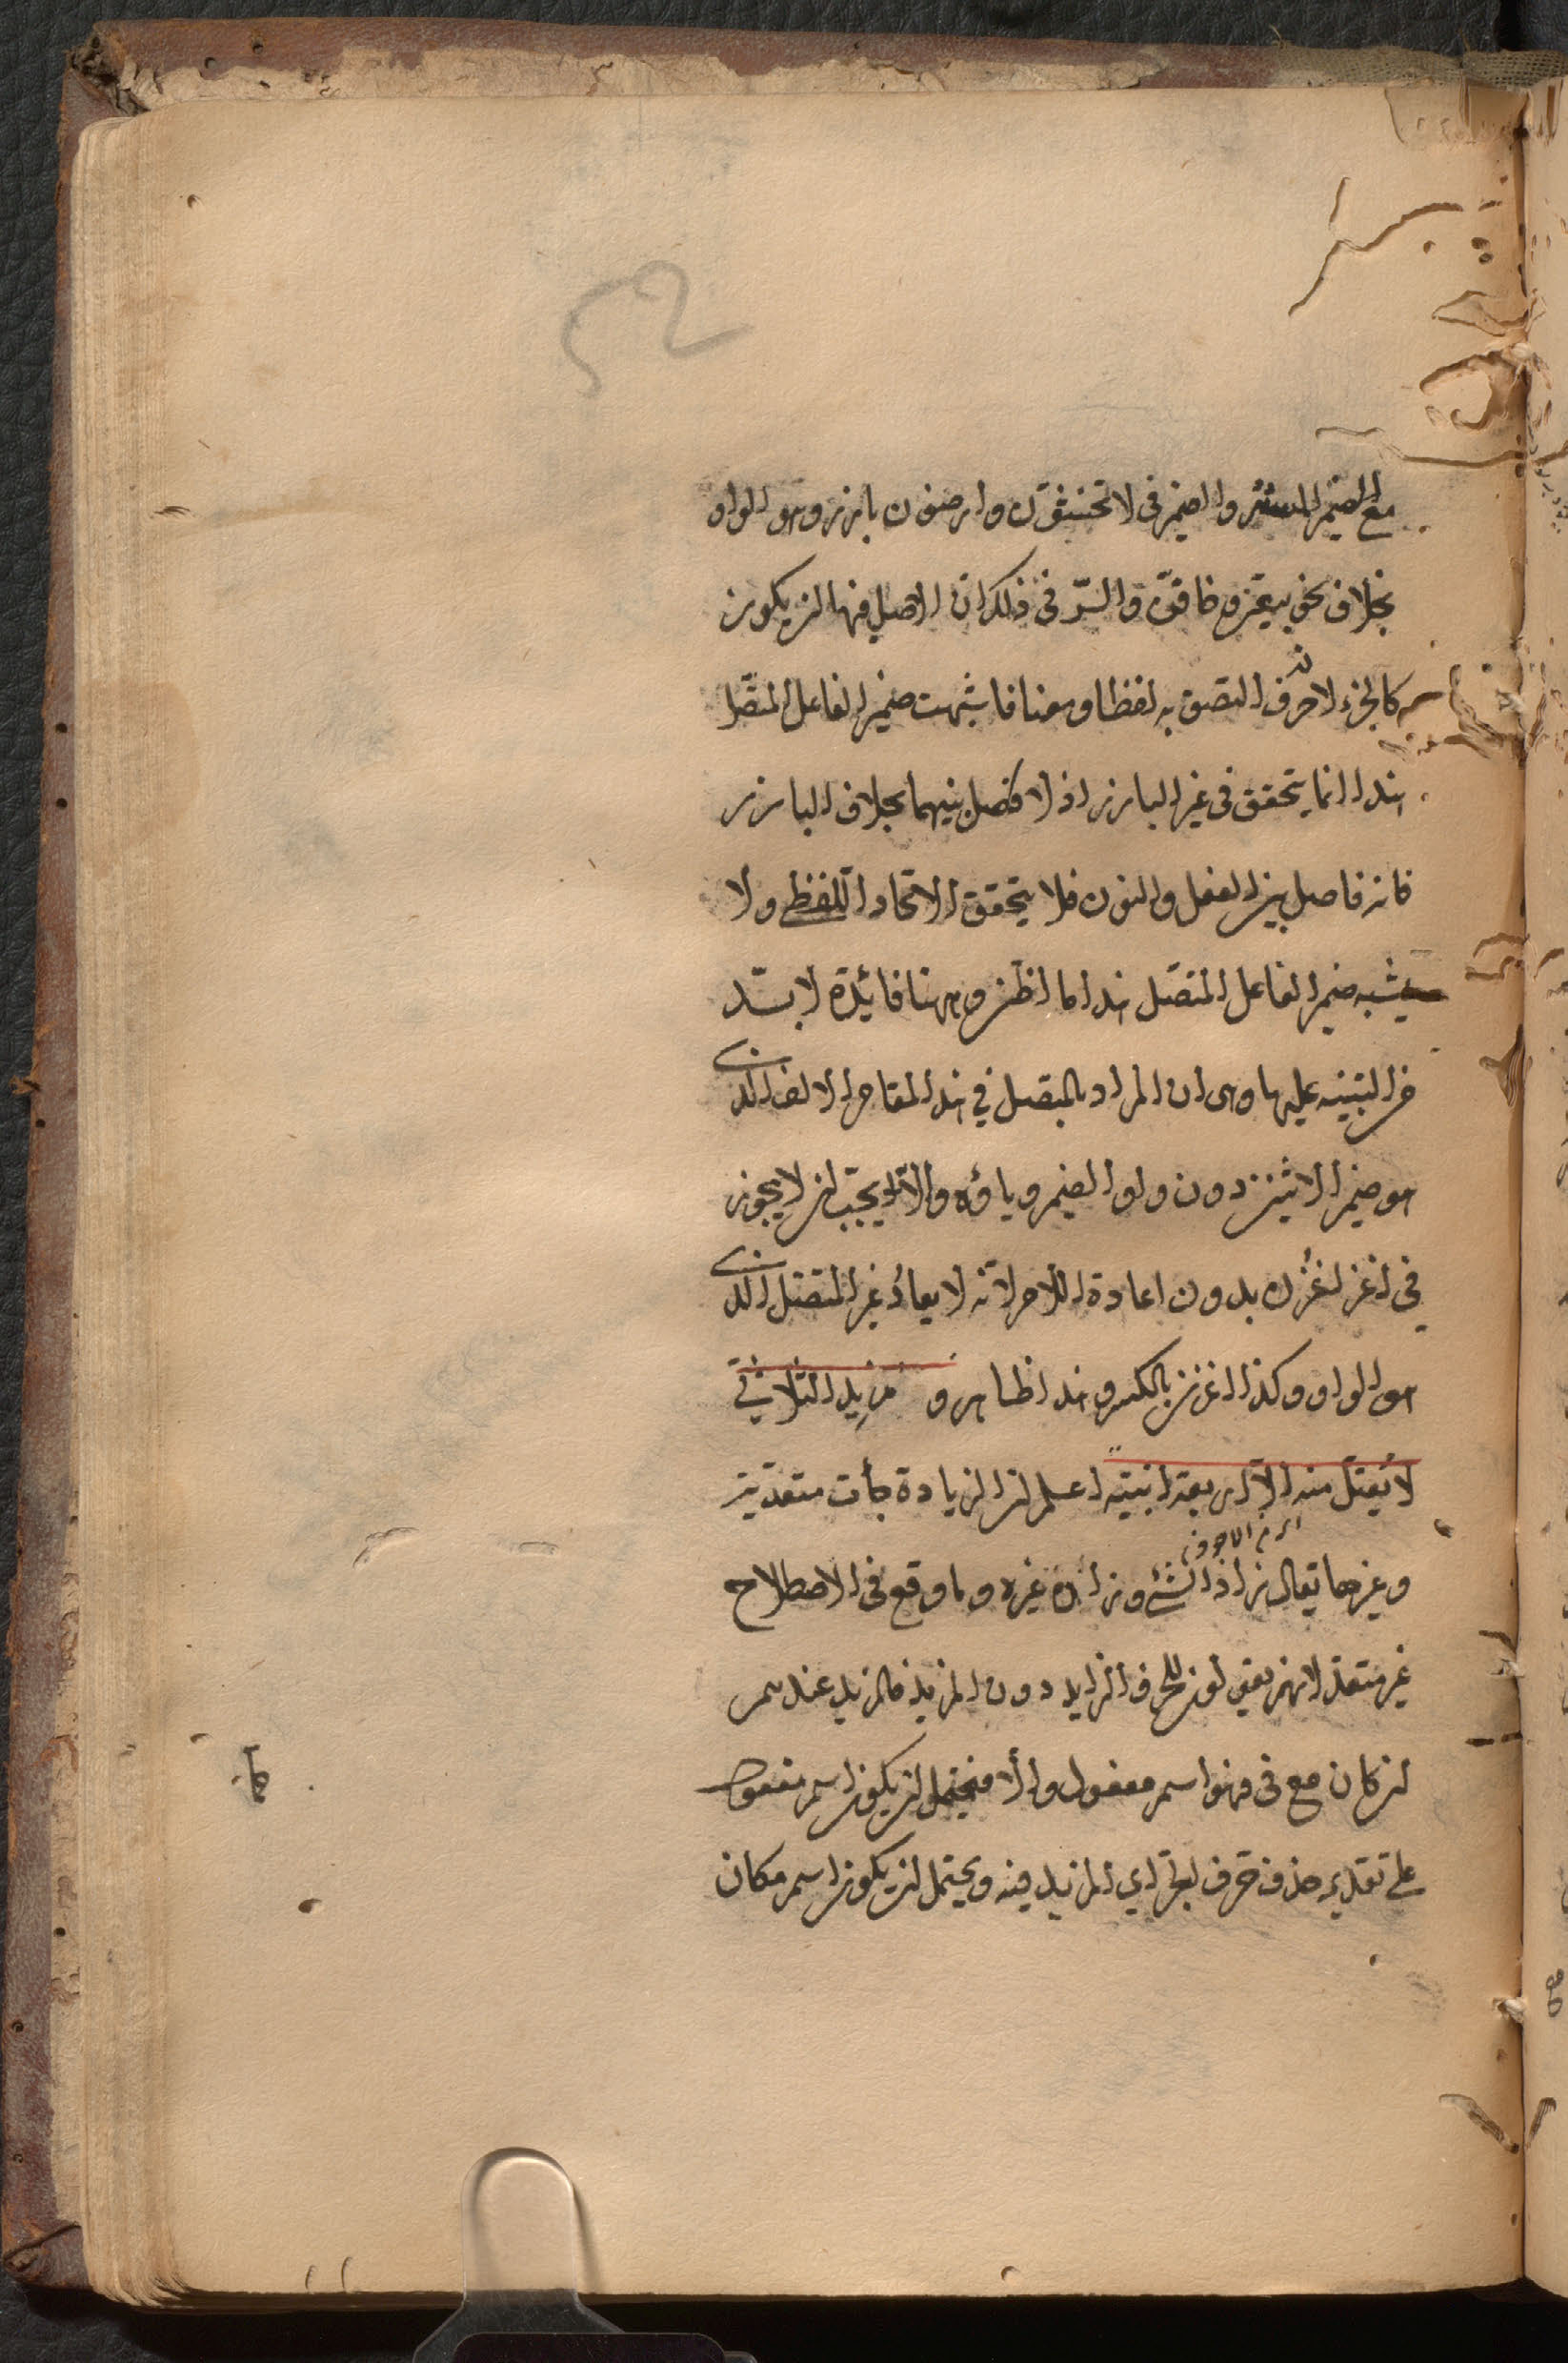 مع الضمير المستتر والضمير فى لا تخشون وارضون بارز وهو الواو
بخلاف نحو بيعن وخافن والسّر فى ذلك ان الاصل فيها ان يكون
كالجزء لا حرف التصق به لفظا ومعنا فاشبهت ضمير الفاعل المتصل
هذا انما يتحقق فى غير البارز اذ لا فصل بينهما بخلاف البارز
فانه فاصل بين الفعل والنون فلا يتحقق الاتحاد اللفظى ولا
يشبه ضمير الفاعل المتصل هذا ما اظن وههنا فائدة لا بدّ
من التنبيه عليها وهى ان المراد بالمتصل فى هذا المقام الالف الذى
هو ضمير الاثنين دون واو الضمير ويائه والّا يجب ان لا يجوز
فى اغز اغزن بدون اعادة اللام لانّه لا يعاد غير المتصل الذى
هو الواو وكذا اغزن بالكسر وهذا ظاهر و مزيد الثلاثى
لا يعتل منه الّا اربعة ابنية اعلم ان الزيادة جأت متعدّية
وغيرها يقال زاد الشئ وزاده غيره وما وقع فى الاصطلاح
غير متعد لانهم يقولون للحرف الزايد دون المزيد فالمزيد عندهم
ان كان مع فى فهو اسم مفعول والّا فيحتمل ان يكون اسم مفعول
على تقدير حذف حرف الجر اي المزيد فيه ويحتمل ان يكون اسم مكان